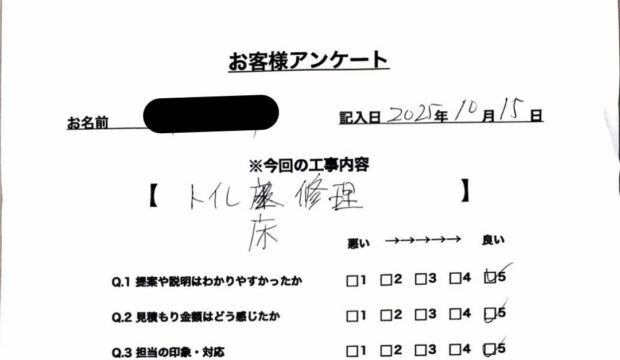 お客様アンケート
お名前 記入日 2025年 10月 15日
※今回の工事内容
【 トイレ 修理 】
床
悪い →→→→→ 良い
Q.1 提案や説明はわかりやすかったか □1 □2 □3 □4 □5
Q.2 見積もり金額はどう感じたか □1 □2 □3 □4 □5
Q.3 担当の印象・対応 □1 □2 □3 □4 □5